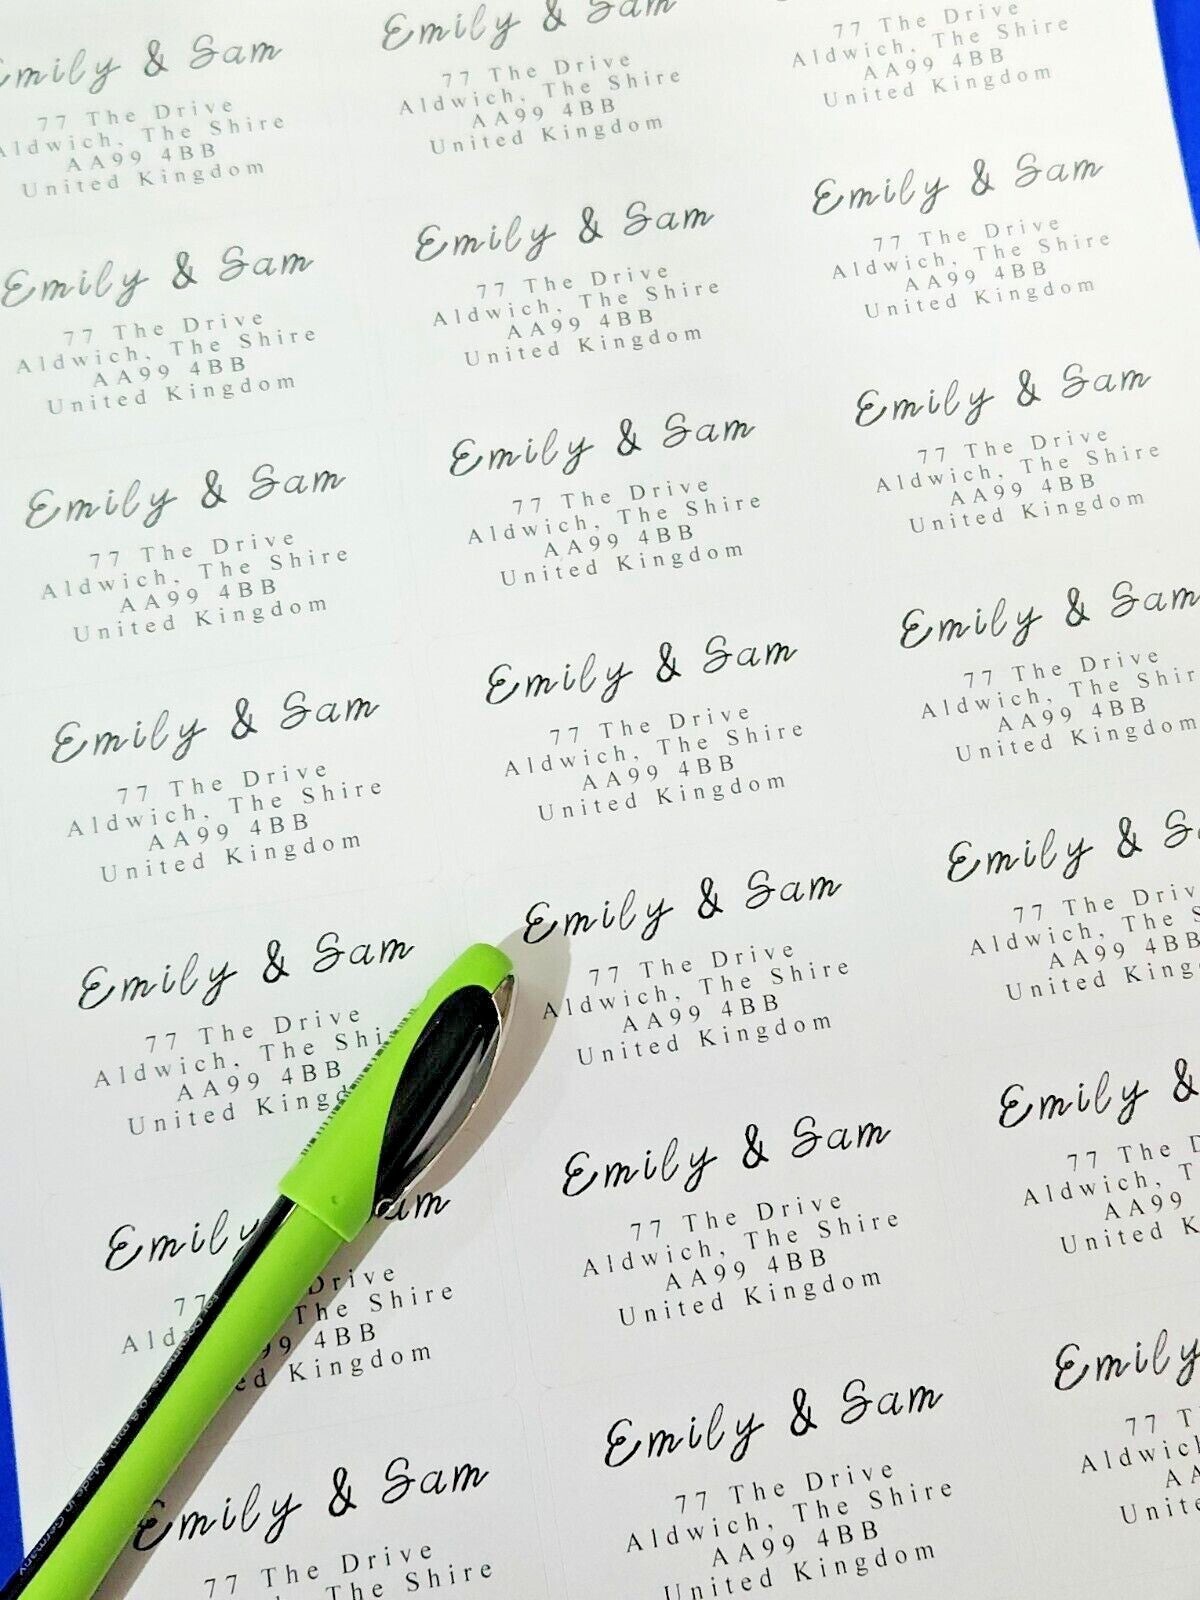 Emily & Sam
77 The Drive
Aldwich, The Shire
AA99 4BB
United Kingdom
Emily & Sam
77 The Drive
Aldwich, The Shire
AA99 4BB
United Kingdom
77 The Drive
Aldwich, The Shire
AA99 4BB
United Kingdom
Emily & Sam
77 The Drive
Aldwich, The Shire
AA99 4BB
United Kingdom
Emily & Sam
77 The Drive
Aldwich, The Shire
AA99 4BB
United Kingdom
Emily & Sam
77 The Drive
Aldwich, The Shire
AA99 4BB
United Kingdom
Emily & Sam
77 The Drive
Aldwich, The Shire
AA99 4BB
United Kingdom
Emily & Sam
77 The Drive
Aldwich, The Shire
AA99 4BB
United Kingdom
Emily & Sam
77 The Drive
Aldwich, The Shire
AA99 4BB
United Kingdom
Emily & Sam
77 The Drive
Aldwich, The Shire
AA99 4BB
United Kingdom
Emily & Sam
77 The Drive
Aldwich, The Shire
AA99 4BB
United Kingdom
Emily & Sam
77 The Drive
Aldwich, The Shir
AA99 4BB
United Kingdom
Emily & Sam
77 The Drive
Aldwich, The Shi
AA99 4BB
United Kingd
Emily & Sam
77 The Drive
Aldwich, The Shire
AA99 4BB
United Kingdom
Emily & S
77 The Driv
Aldwich, The S
AA99 4BB
United King
Emily am
77 Drive
Ald The Shire
99 4BB
ed Kingdom
Emily & Sam
77 The Drive
Aldwich, The Shire
AA99 4BB
United Kingdom
Emily &
77 The D
Aldwich, T
AA99
United K
Emily & Sam
77 The Drive
The Shire
Emily & Sam
77 The Drive
Aldwich, The Shire
AA99 4BB
United Kingdom
Emily
77 T
Aldwich
AA
Unite
For Documents 0.8 mm Made in Germany